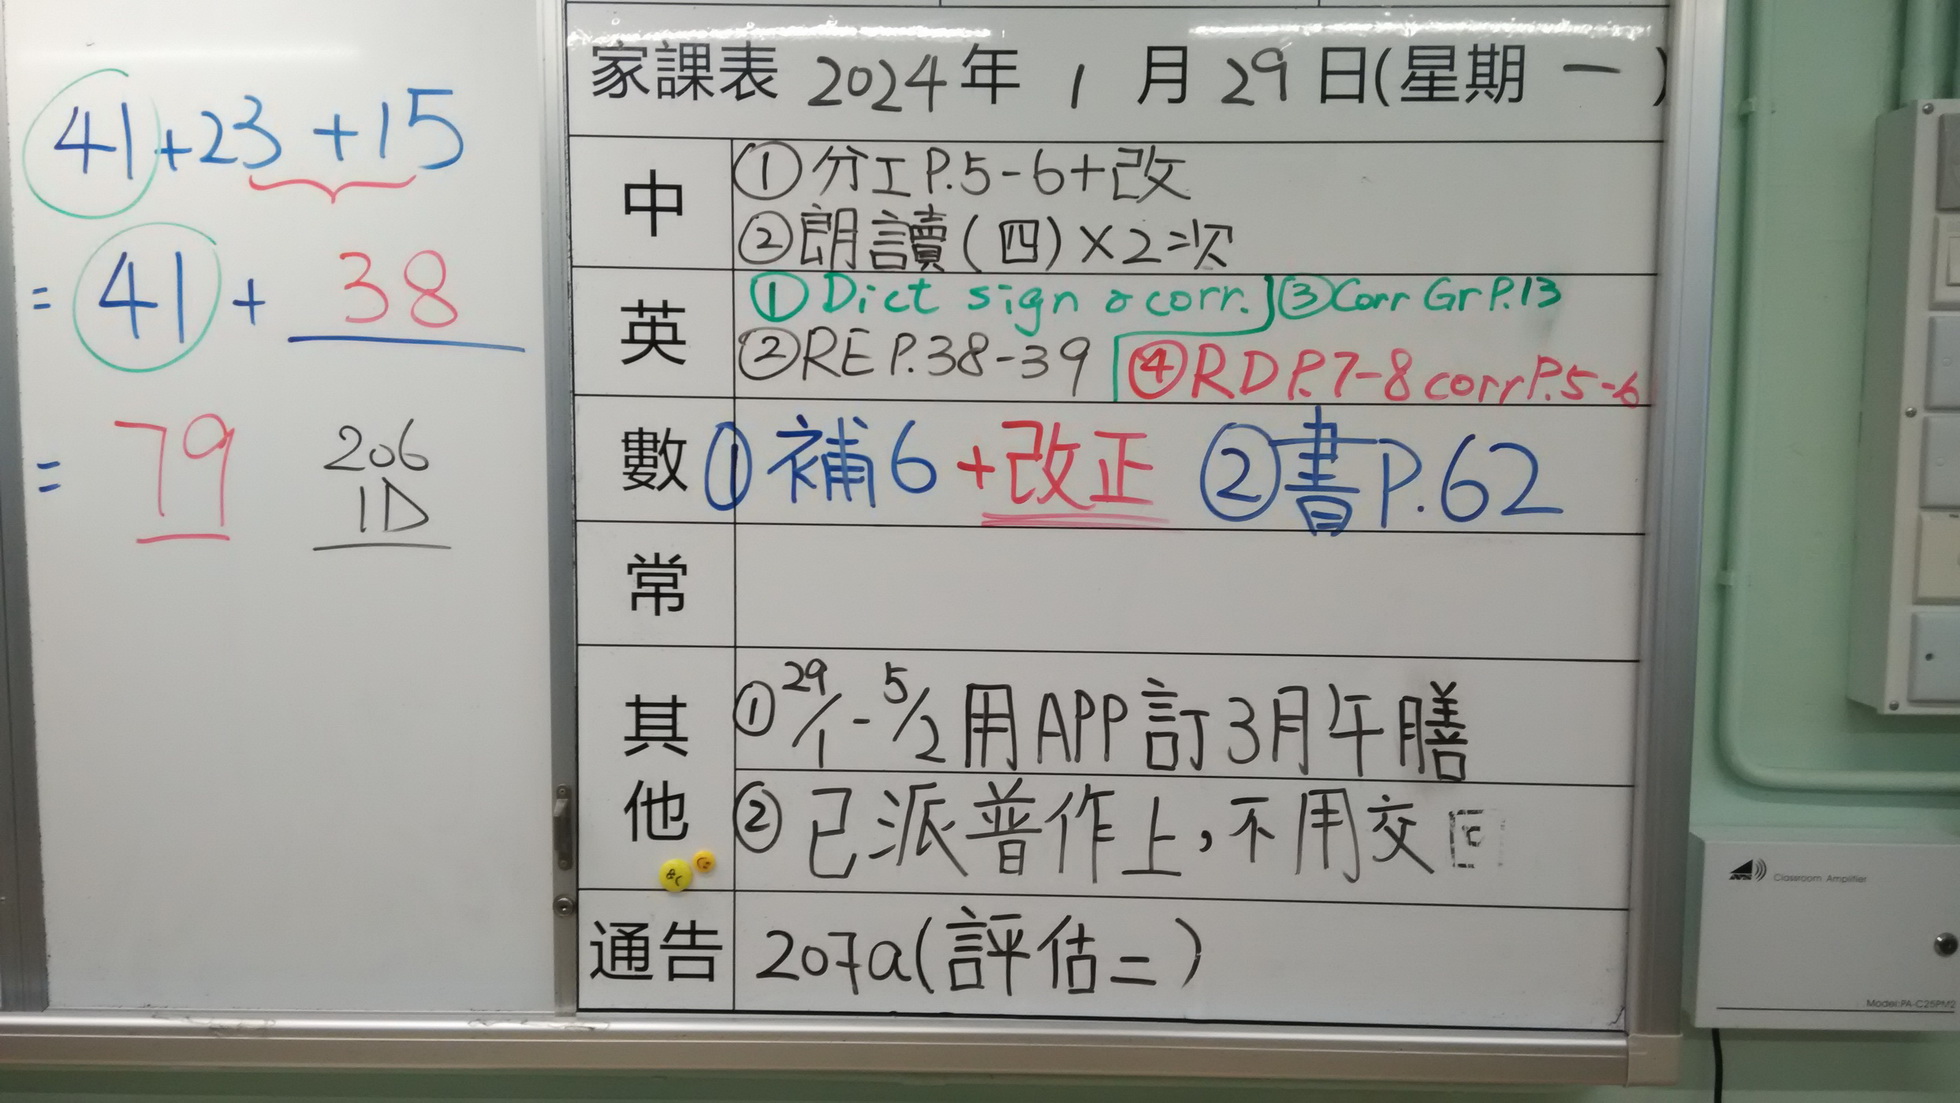 41+23+15
= 41 + 38
= 79
206
1D
家課表 2024年 1 月 29 日(星期 一 )
中
①分工P.5-6+改
②朗讀(四)×2次
英
①Dict sign & corr. ③Corr Gr P.13
②RE P.38-39 ④RD P.7-8 corr P.5-6
數 ①補6+改正 ②書P.62
常
其他
①29/1-5/2用APP訂3月午膳
②已派普作上,不用交回
通告 207a(評估二)
Classroom Amplifier
Model:PA-C25PM2